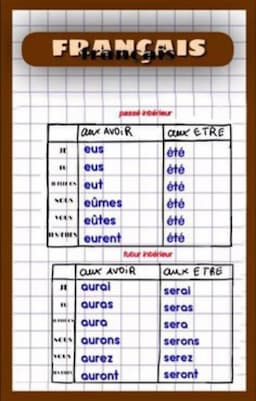 FRANÇAIS
français
passé intérieur
aux AVOIR aux ETRE
JE eus été
TU eus été
eut été
NOUS eûmes été
VOUS eûtes été
ILS/ELLES eurent été
futur intérieur
aux AVOIR aux ETRE
JE aurai serai
TU auras seras
aura sera
NOUS aurons serons
VOUS aurez serez
auront seront